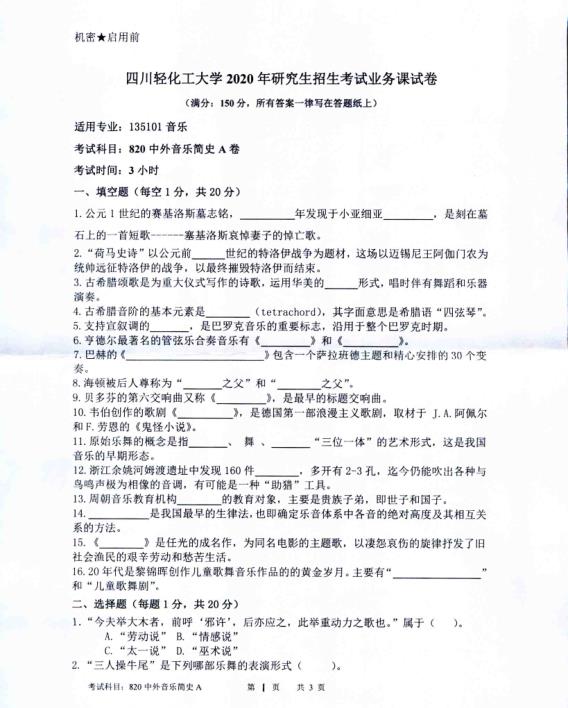 机密★启用前
四川轻化工大学 2020 年研究生招生考试业务课试卷
（满分：150 分，所有答案一律写在答题纸上）
适用专业：135101 音乐
考试科目：820 中外音乐简史 A 卷
考试时间：3 小时
一、填空题（每空 1 分，共 20 分）
1. 公元 1 世纪的赛基洛斯墓志铭，________年发现于小亚细亚________，是刻在墓
石上的一首短歌------塞基洛斯哀悼妻子的悼亡歌。
2.“荷马史诗”以公元前______世纪的特洛伊战争为题材，这场以迈锡尼王阿伽门农为
统帅远征特洛伊的战争，以最终摧毁特洛伊而结束。
3. 古希腊颂歌是为重大仪式写作的诗歌，运用华美的______形式，唱时伴有舞蹈和乐器
演奏。
4. 古希腊音阶的基本元素是________（tetrachord），其字面意思是希腊语“四弦琴”。
5. 支持宣叙调的________，是巴罗克音乐的重要标志，沿用于整个巴罗克时期。
6. 亨德尔最著名的管弦乐合奏音乐有《________》和《________》。
7. 巴赫的《____________________》包含一个萨拉班德主题和精心安排的 30 个变
奏。
8. 海顿被后人尊称为“______之父”和“________之父”。
9. 贝多芬的第六交响曲又称《________》，是最早的标题交响曲。
10. 韦伯创作的歌剧《________》，是德国第一部浪漫主义歌剧，取材于 J.A.阿佩尔
和 F.劳恩的《鬼怪小说》。
11. 原始乐舞的概念是指______、 舞 、________“三位一体”的艺术形式，这是我国
音乐的早期形态。
12. 浙江余姚河姆渡遗址中发现 160 件________，多开有 2-3 孔，迄今仍能吹出各种与
鸟鸣声极为相像的音调，有可能是一种“助猎”工具。
13. 周朝音乐教育机构________的教育对象，主要是贵族子弟，即世子和国子。
14. ________是我国最早的生律法，也即确定乐音体系中各音的绝对高度及其相互关
系的方法。
15. 《________》是任光的成名作，为同名电影的主题歌，以凄怨哀伤的旋律抒发了旧
社会渔民的艰辛劳动和愁苦生活。
16. 20 年代是黎锦晖创作儿童歌舞音乐作品的的黄金岁月。主要有“______________”
和“儿童歌舞剧”。
二、选择题（每题 1 分，共 20 分）
1. “今夫举大木者，前呼‘邪许’，后亦应之，此举重动力之歌也。”属于（ ）。
A. “劳动说” B. “情感说”
C. “太一说” D. “巫术说”
2. “三人操牛尾”是下列哪部乐舞的表演形式（ ）。
考试科目：820 中外音乐简史 A 第 1 页 共 3 页